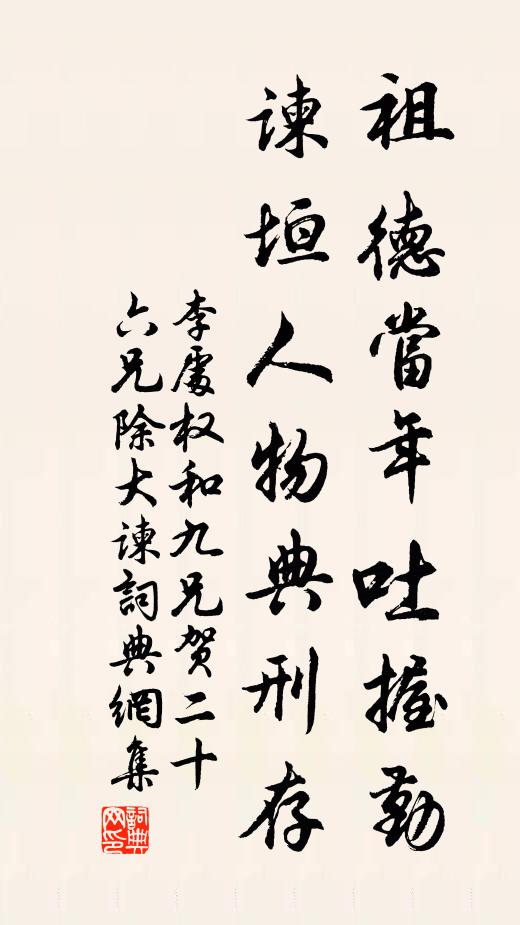 祖德當年吐握勤
諫垣人物典刑存
李處权和九兄贺二十
六兄除大諫詞典網集
詞典
网印